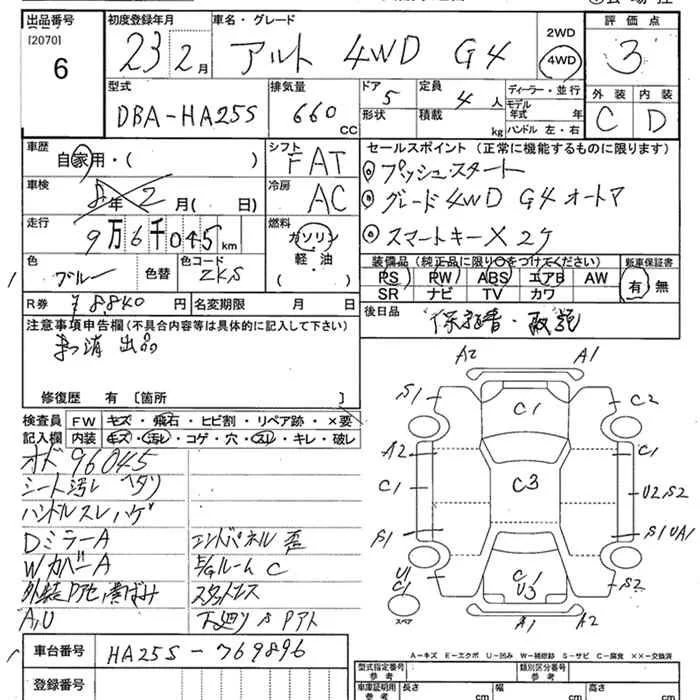 出品番号
[2070]
6
初度登録年月
23 2月
車名・グレード
アルト 4WD G4
2WD
4WD
評価点
3
型式
DBA-HA25S
排気量
660
CC
ドア
5
形状
定員
4人
積載
kg
ディーラー・並行
モデル年式 年
ハンドル 左・右
外装 内装
C D
車歴
自家用・( )
シフト
FAT
車検
8年2月( 日)
冷房
AC
走行
9万6千045km
燃料
ガソリン
軽・油
( )
色
ブルー
色替
色コード
ZKS
R券
¥8,840円
名変期限 月 日
セールスポイント(正常に機能するものに限ります)
◎プッシュスタート
◎グレード4WD G4 オートマ
◎スマートキー×2ケ
装備品(純正品に限り○をつけてください)
新車保証書
PS PW ABS エアB AW
SR ナビ TV カワ
有 無
後日品
保証書・取説
注意事項申告欄(不具合内容等は具体的に記入して下さい)
まっ消 出品
修復歴 有 [箇所 ]
検査員
記入欄
FW キズ・飛石・ヒビ割・リペア跡・×要
内装 キズ・汚レ・コゲ・穴・スレ・キレ・破レ
オド 96045
シート汚レ ヘタリ
ハンドルスレ ハゲ
DミラーA
エンドパネル 歪
WカバーA
E/Gルーム C
外装Pアセ,黄ばみ
スタットレス
A,U
下廻りS Pアト
A2 A1
S1 C1 C2
A2 C1
C1 C3 U2 S2
S1 S1 UA1
U1
C1 C1
U3 S2
スペア
A1 A2
A-キズ E-エクボ U-凹み W-補修跡 S-サビ C-腐食 ××-交換済
車台番号
HA25S-769896
登録番号
型式指定番号
参考
類別区分番号
参考
車庫証明用
参考
長さ cm
幅 cm
高さ cm